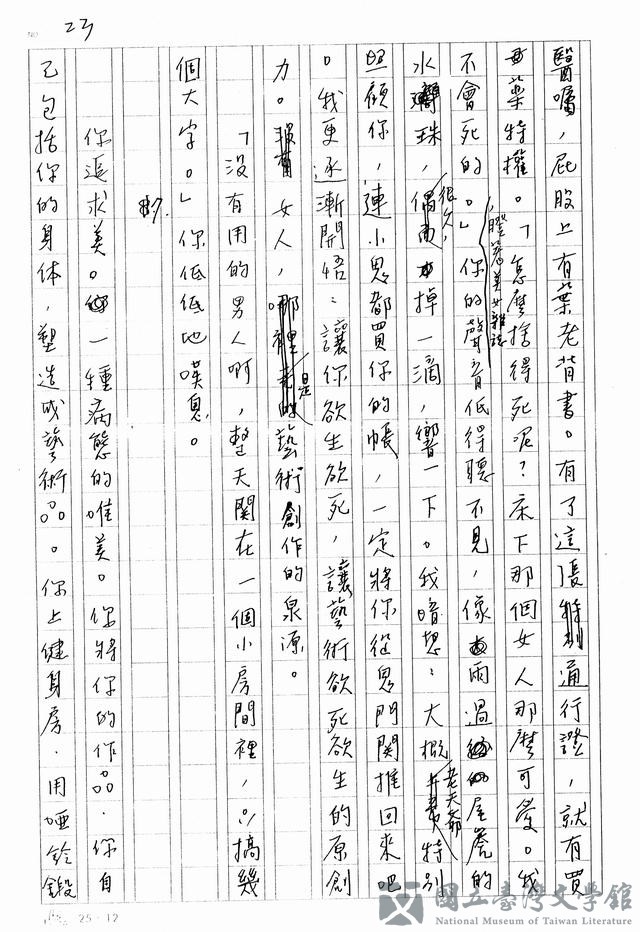 23
醫囑，屁股上有葉老背書。有了這張特別通行證，就有買
藥特權。「怎麼捨得死呢？床下那個女人那麼可愛。我
不會死的。」你的聲音低得聽不見，像雨過的屋簷的
，瞪著美女雜誌
水珠，很久，偶掉一滴，響一下。我暗想：大概老天爺特別
照顧你，連小鬼都買你的帳，一定將你從鬼門關推回來吧
。我更逐漸開悟：讓你欲生欲死，讓藝術欲死欲生的原創
力。女人，是藝術創作的泉源。
「沒有用的男人啊，整天關在一個小房間裡，只搞幾
個大字。」你低低地嘆息。
7.
你追求美。一種病態的唯美。你將你的作品，你自
己包括你的身体，塑造成藝術品。你上健身房，用啞鈴鍛
25×12
國立臺灣文學館
National Museum of Taiwan Literature